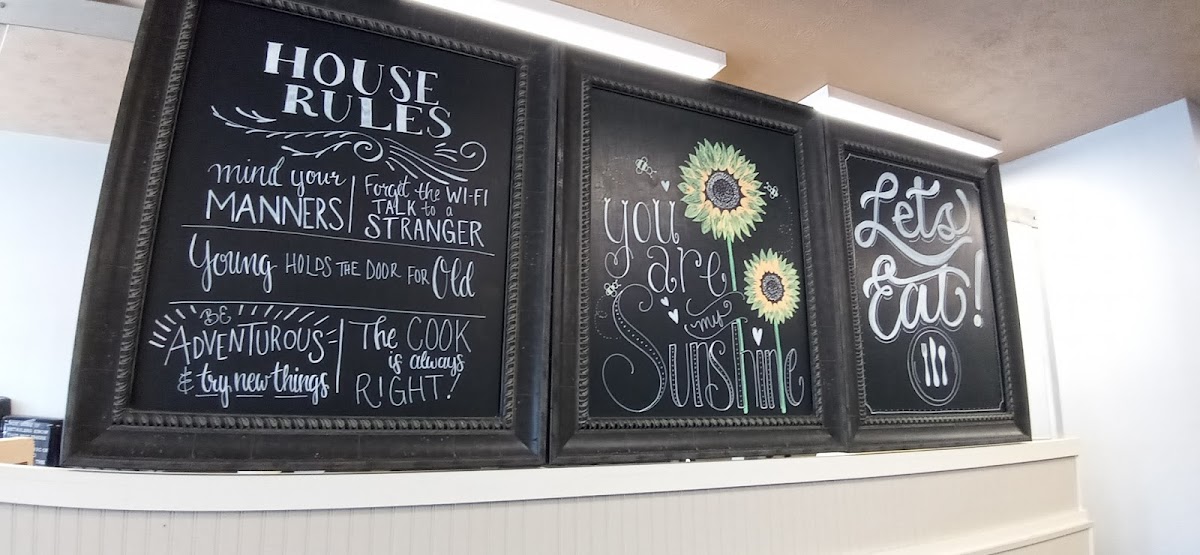 HOUSE
RULES
mind your
MANNERS
Forget the WI-FI
TALK to a
STRANGER
Young HOLDS THE DOOR FOR Old
BE
ADVENTUROUS
& try new things
The COOK
is always
RIGHT!
you
are
my
Sunshine
Lets
Eat!